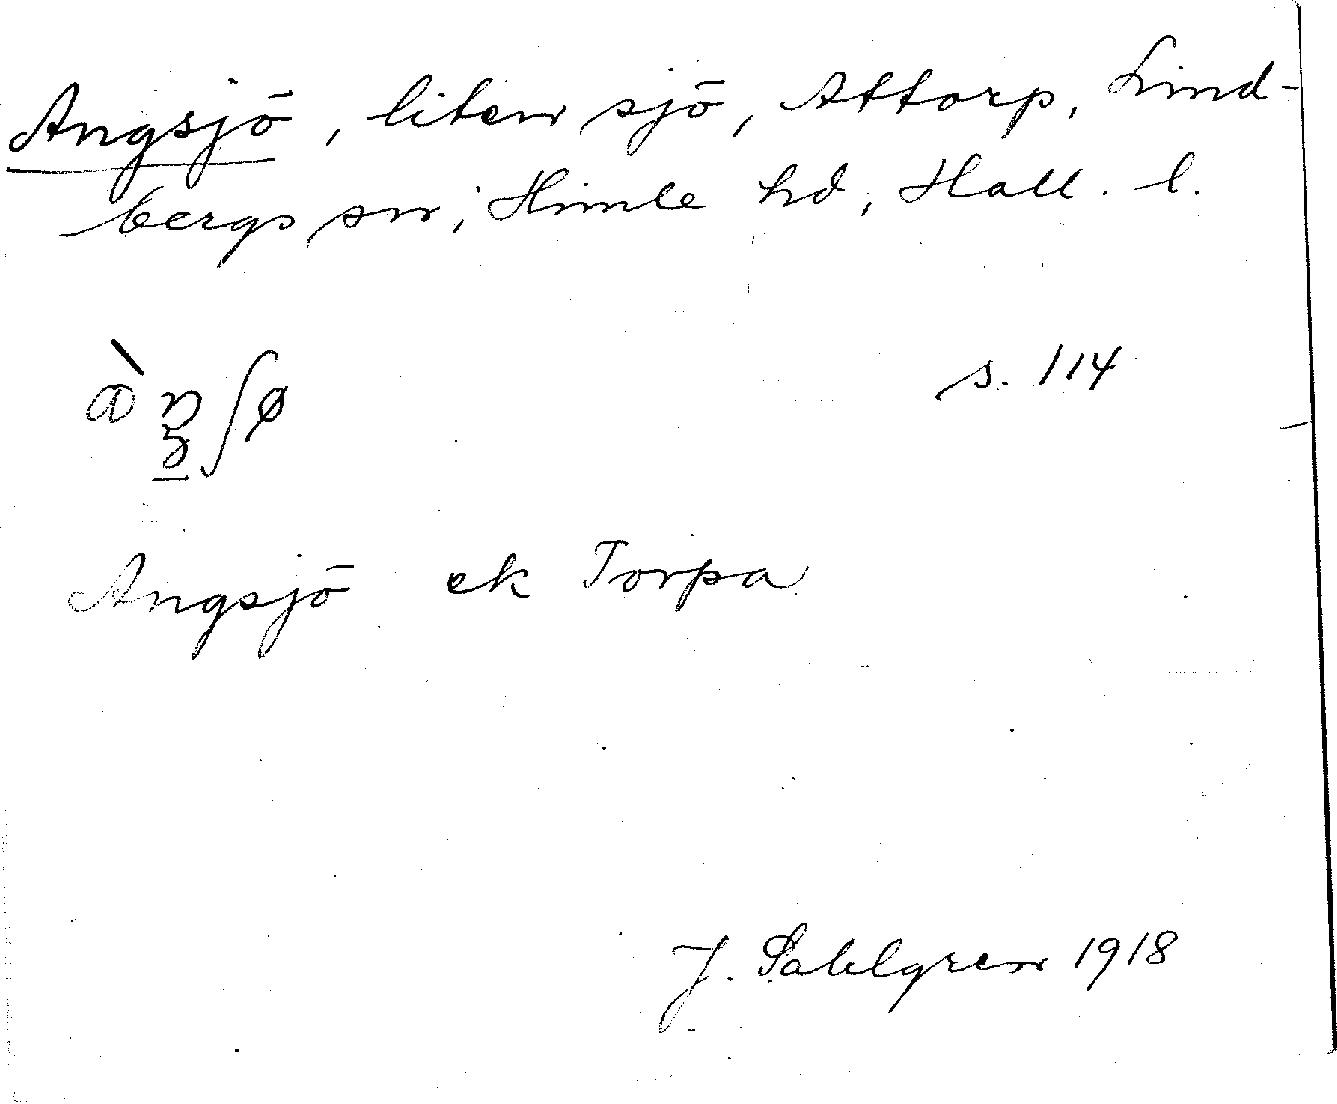 Angsjö, liten sjö, Attorp, Lind-
bergs sn, Himle hd, Hall. l.
s. 114
Angsjö ek Torpa
J. Sahlgren 1918